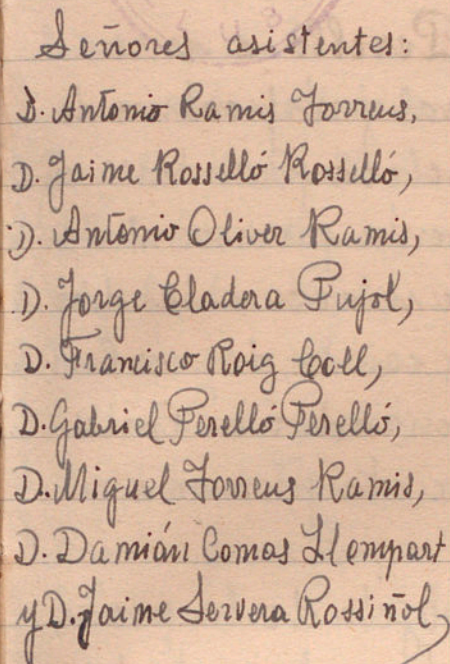 Señores asistentes:
D. Antonio Ramis Torrens,
D. Jaime Rosselló Rosselló,
D. Antonio Oliver Ramis,
D. Jorge Cladera Pujol,
D. Francisco Roig Coll,
D. Gabriel Perelló Perelló,
D. Miguel Torrens Ramis,
D. Damián Comas Llompart
y D. Jaime Servera Rossiñol,